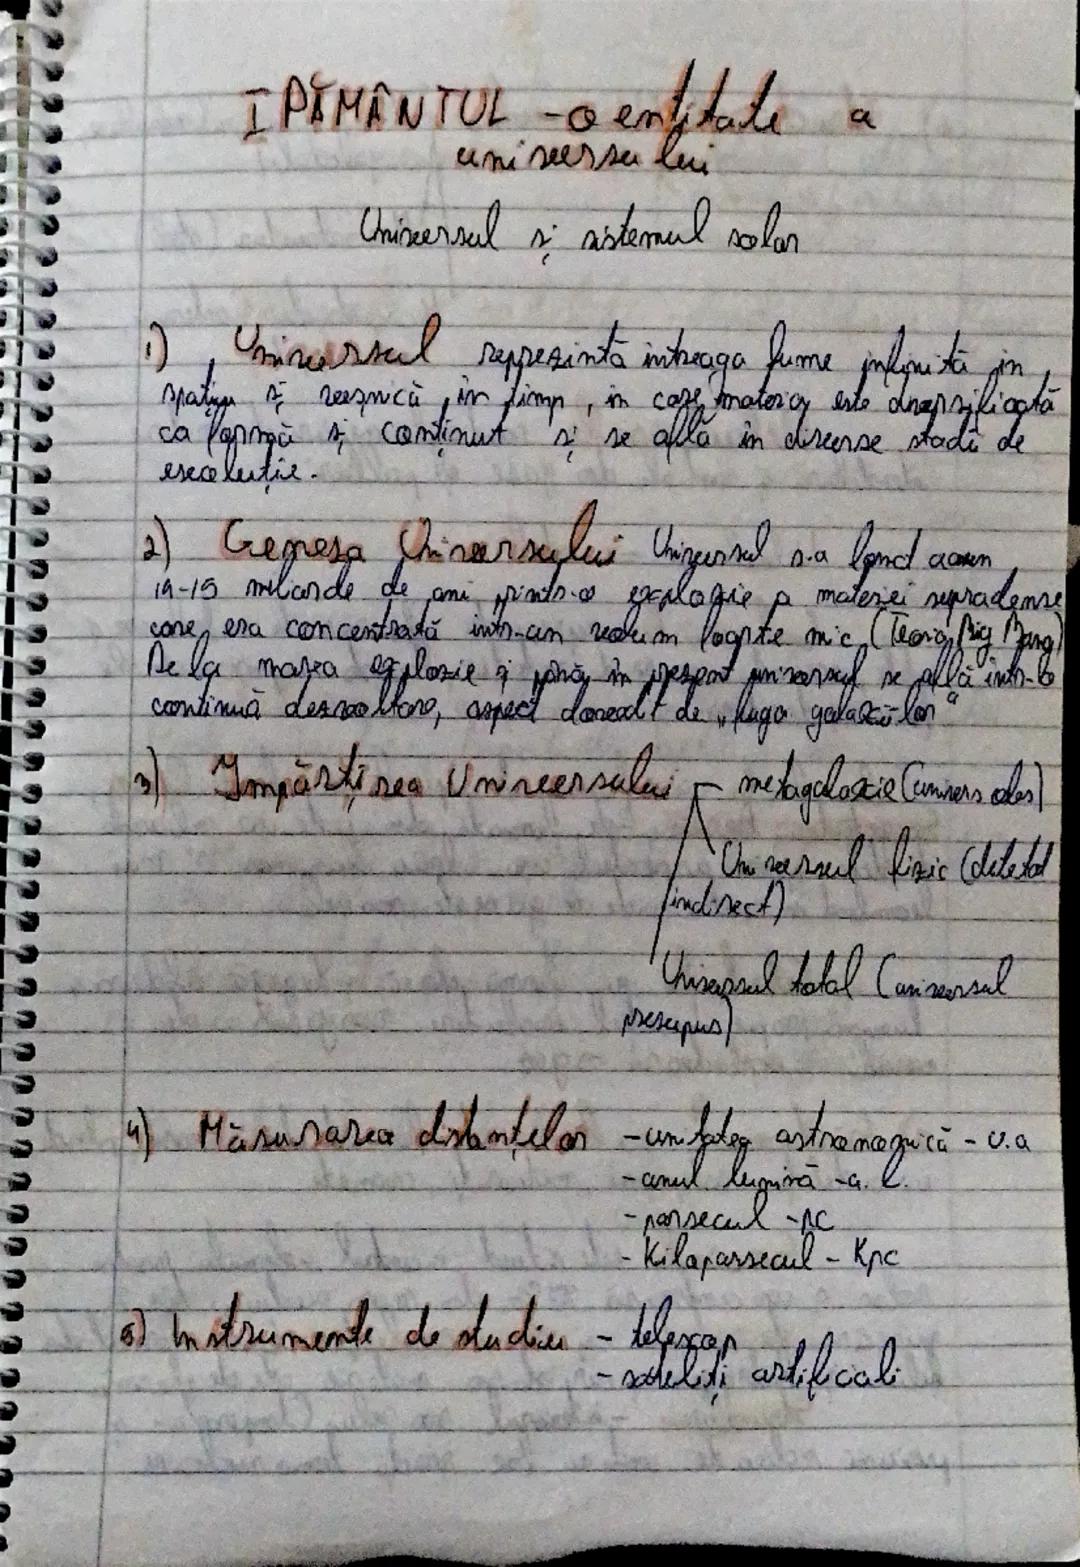 I PĂMÂNTUL - o entitate a
universului
Universul și sistemul solar
1) Universul reprezintă întreaga lume infinită în
spațiu și veșnică în timp, în care materia este diversificată
ca formă și conținut și se află în diverse stadii de
evoluție.
2) Geneza Universului Universul s-a format acum
14-15 miliarde de ani printr-o explozie a materiei supradense
care era concentrată într-un volum foarte mic (Teoria Big Bang)
De la marea explozie și până în prezent universul se află într-o
continuă dezvoltare, aspect dovedit de „fuga galaxiilor"
3) Împărțirea Universului - metagalaxie (univers)
Universul fizic (detectat
indirect)
Universul total (universul
presupus)
4) Măsurarea distanțelor - unitatea astronomică - u.a
- anul lumină - a.l.
- parsecul - pc
- Kiloparsecul - Kpc
5) Instrumente de studiu - telescop
- sateliți artificiali